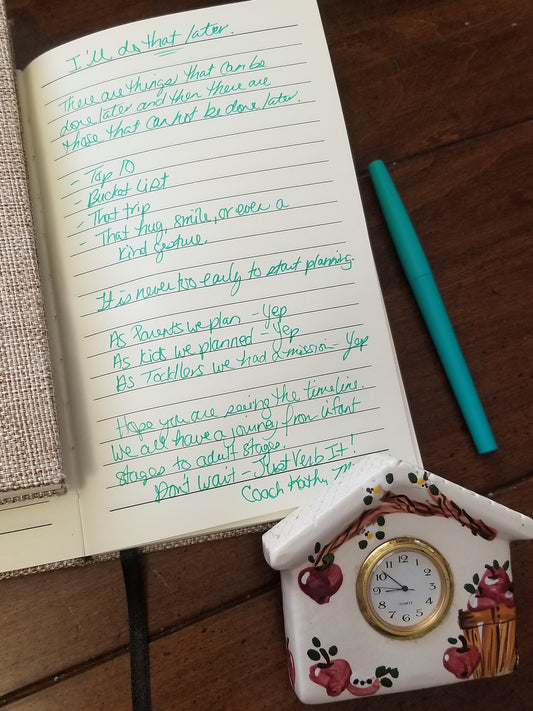 I'll do that later.
There are things that can be
done later and then there are
those that cannot be done later.
- Top 10
- Bucket List
- That trip
- That hug, smile, or even a
kind gesture.
It is never too early to start planning.
As Parents we plan - Yep
As kids we planned - Yep
As Toddlers we had a mission - Yep
Hope you are seeing the timeline.
We all have a journey from infant
stages to adult stages.
Don't wait - Just Verb It!
Coach Kathy M
12
1
2
3
4
5
6
7
8
9
10
11
QUARTZ